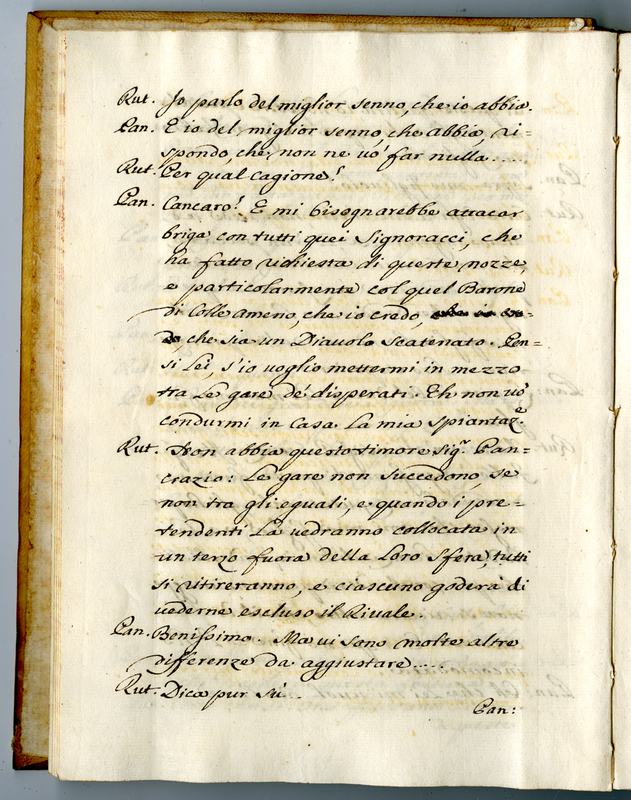 Rut. Jo parlo del miglior senno, che io abbia.
Pan. E io del miglior senno che abbia, ri=
spondo, che non ne vo' far nulla.....
Rut. Per qual cagione?
Pan. Cancaro! E mi bisognarebbe attacar
briga con tutti quei Signoracci, che
ha fatto richiesta di queste nozze,
e particolarmente col quel Barone
di Colle ameno, che io credo,
che sia un Diavolo Scatenato. Pen=
si Lei, s'io voglio mettermi in mezzo
tra Le gare de' disperati. Eh non vo'
condurmi in Casa La mia Spiantaz.e
Rut. Non abbia questo timore Sig.r Pan=
crazio: Le gare non succedono, se
non tra gli eguali, e quando i pre=
tendenti La vedranno collocata in
un terzo fuora della Loro Sfera, tutti
si ritireranno, e ciascuno goderà di
vederne escluso il Rivale.
Pan. Benissimo. Ma vi sono molte altre
differenze da aggiustare....
Rut. Dica pur sù..
Pan: